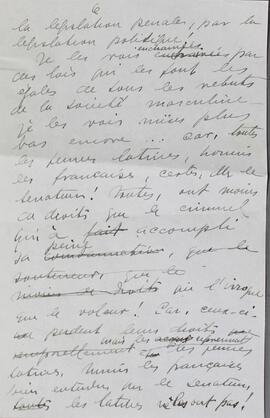 6
la législation pénales, par la
législation politique!
Je les vois enchainées par
des lois qui les font les
égales de tous les rebuts
de la société masculine —
Je les vois mises plus
bas encore ... car, toutes
les femmes latines, hormis
les françaises, certes, Mr. le
Senateur! toutes, ont moins
de droits que le criminel
qui a fait accompli
sa peine condamnation, que le
souteneur, que le
que le voleur. Car, ceux-ci
perdent leurs droits
mais les
les femmes
latines, hormis les françaises
bien entendu Mr. le Senateur,
toutes les latines n'en ont pas!